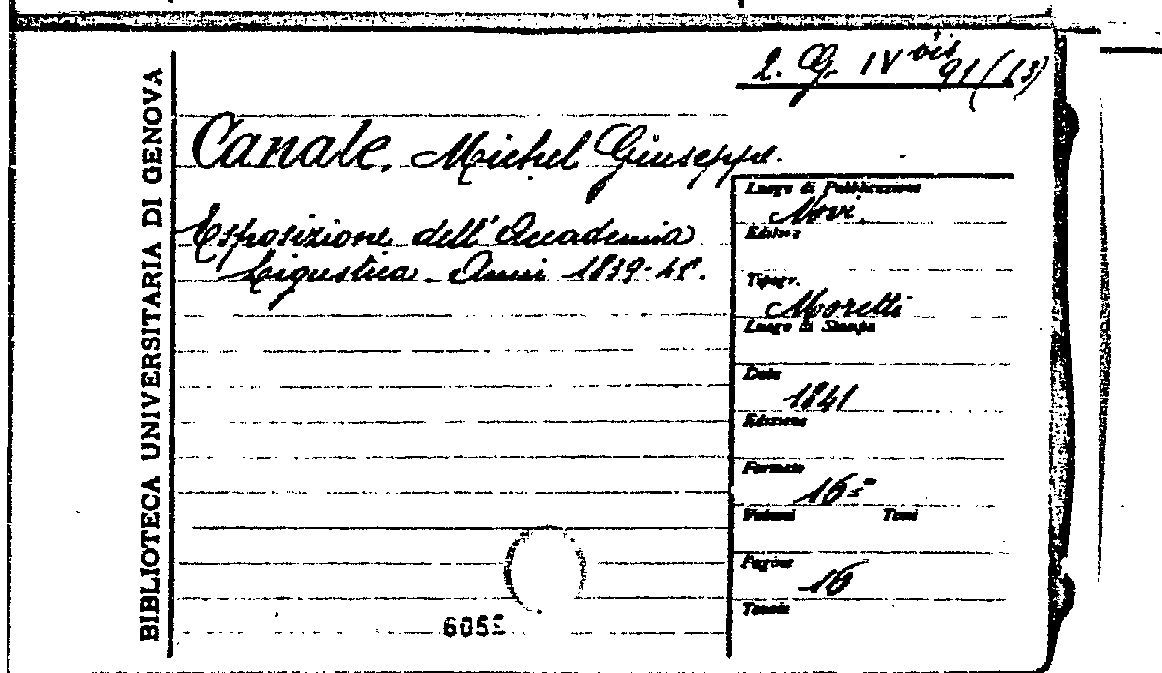 BIBLIOTECA UNIVERSITARIA DI GENOVA
2. G. IV bis 91 (13)
Canale, Michel Giuseppe.
Esposizione dell'Accademia
Ligustica - Anni 1839-41.
Luogo di Pubblicazione
Novi
Editore
Tipogr.
Moretti
Luogo di Stampa
Data
1841
Edizione
Formato
16º
Volumi Tomi
Pagine
16
Tavole